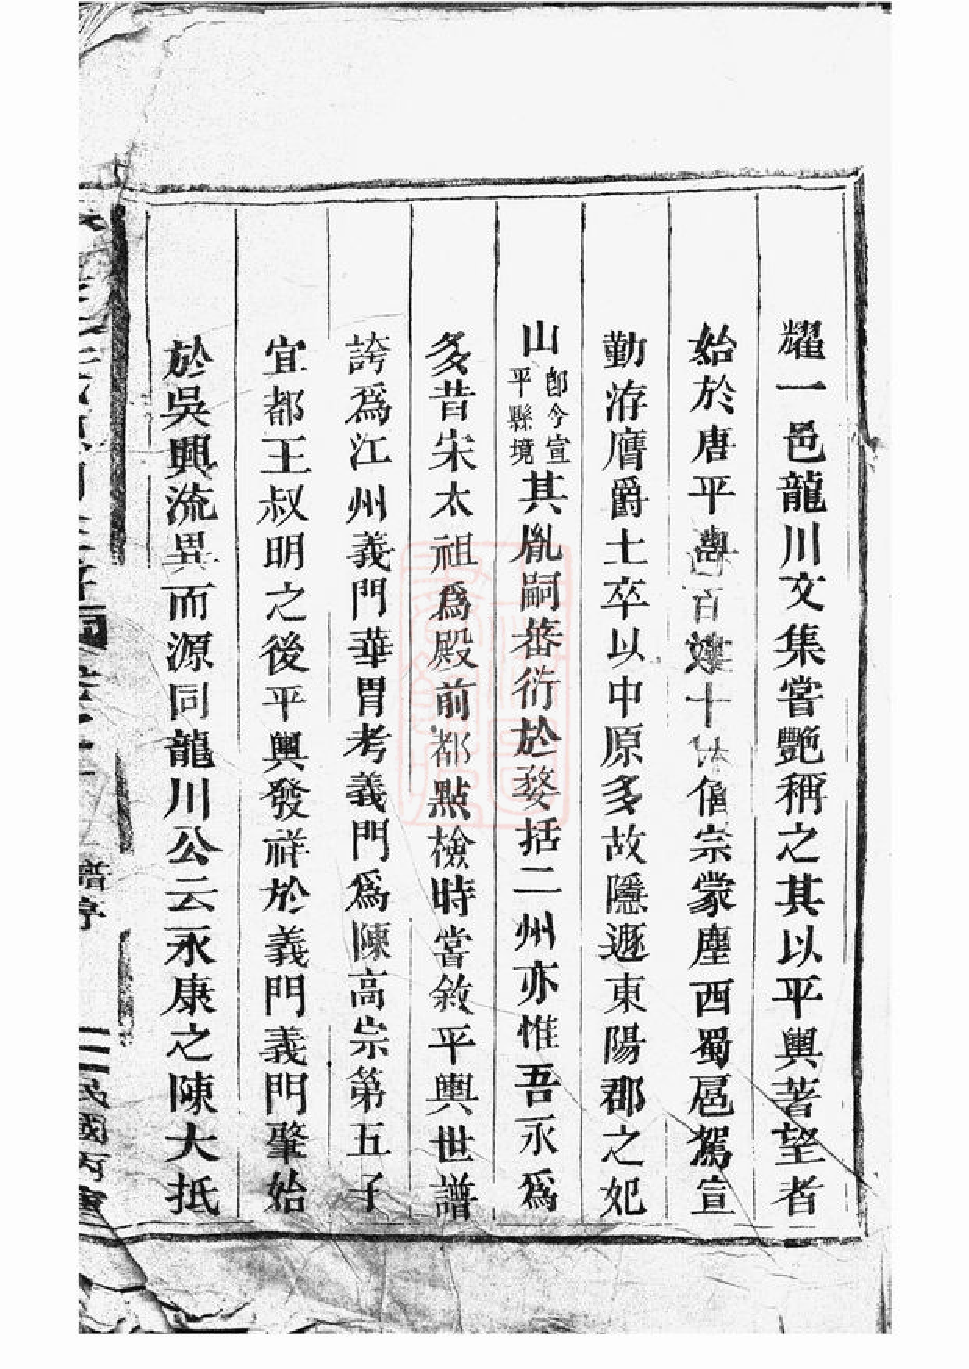 耀一邑龍川文集嘗艷稱之其以平輿著望者
始於唐平輿百十僖宗蒙塵西蜀扈駕宣
勤洊膺爵土卒以中原多故隱遯東陽郡之妃
山卽今宣平縣境其胤嗣蕃衍於婺括二州亦惟吾永爲
多昔宋太祖爲殿前都點檢時嘗敘平輿世譜
誇爲江州義門華胄考義門爲陳高宗第五子
宜都王叔明之後平輿發祥於義門義門肇始
於吳興流異而源同龍川公云永康之陳大抵
譜序
二
民國丙